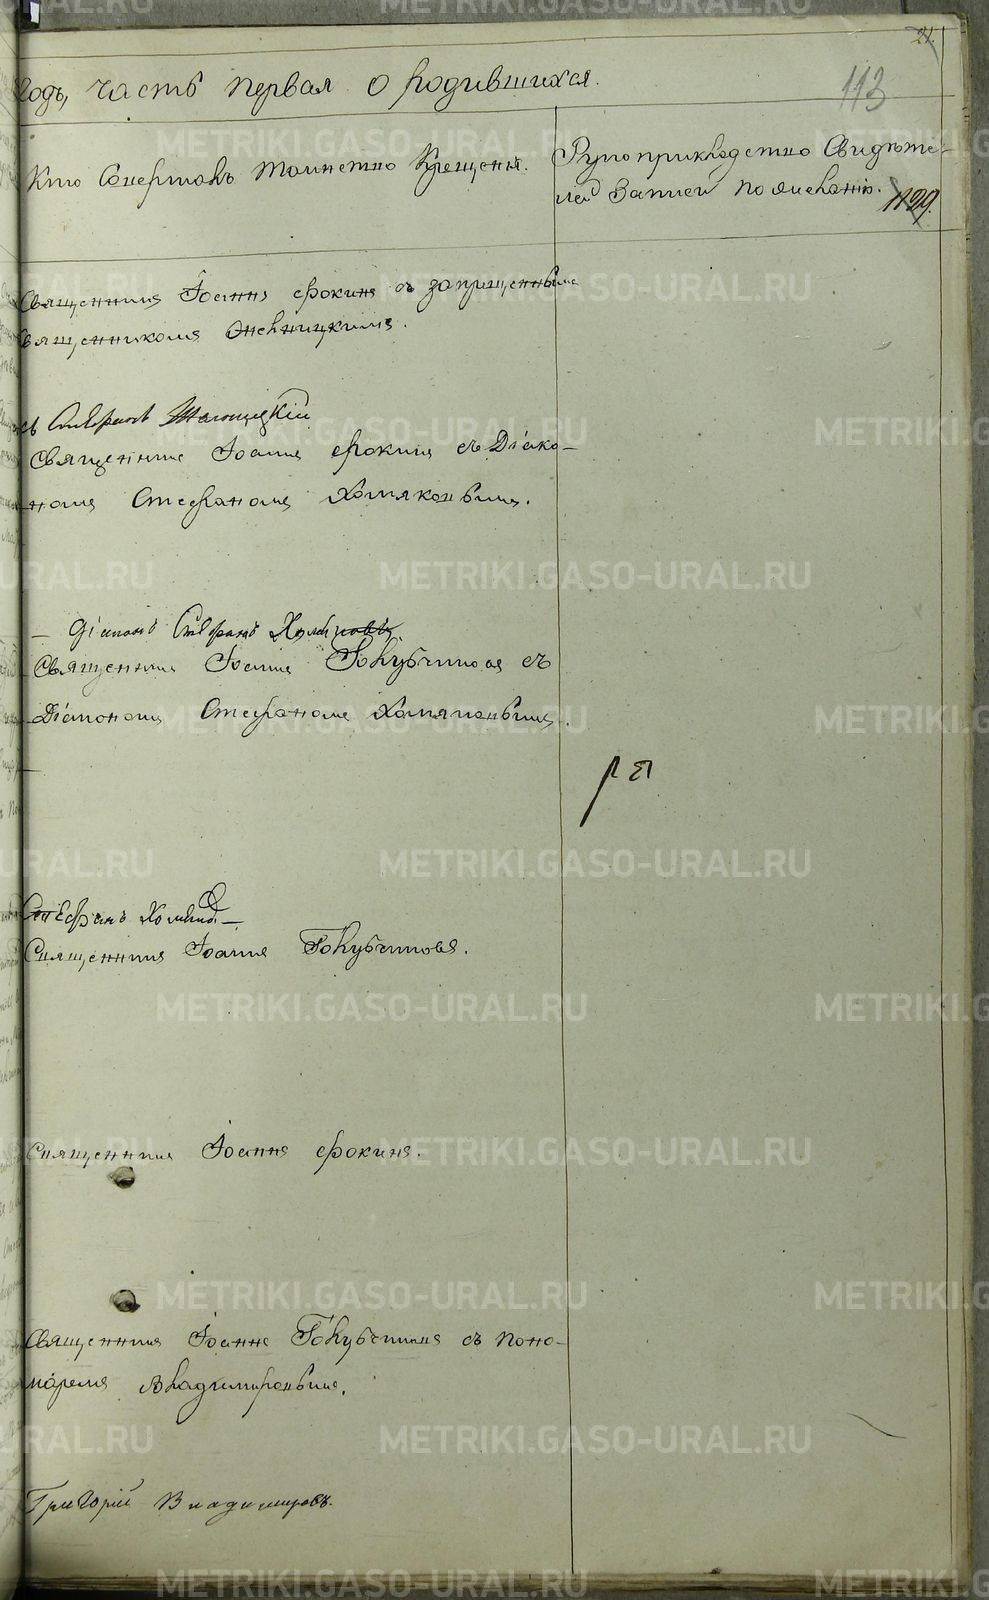 21.
годъ, часть первая о родившихся.
113
Кто Совершалъ таинство Крещенія.
Рукоприкладство Свидѣте-
лей записи по желанію.
1129.
Священникъ Іоаннъ Фокинъ съ запрещеннымъ
Священникомъ
съ Стефанъ
Священникъ Іоаннъ Фокинъ съ Діако-
номъ Стефаномъ Хомяковымъ.
Діаконъ Стефанъ Хомяковъ.
Священникъ Іоаннъ Голубчиковъ съ
Діакономъ Стефаномъ Хомяковымъ.
Стефанъ
Священникъ Іоаннъ Голубчиковъ.
Священникъ Іоаннъ Фокинъ.
Священникъ Іоаннъ Голубчиковъ съ Поно-
маремъ Владимировымъ.
Григорій Владимировъ.
METRIKI.GASO-URAL.RU